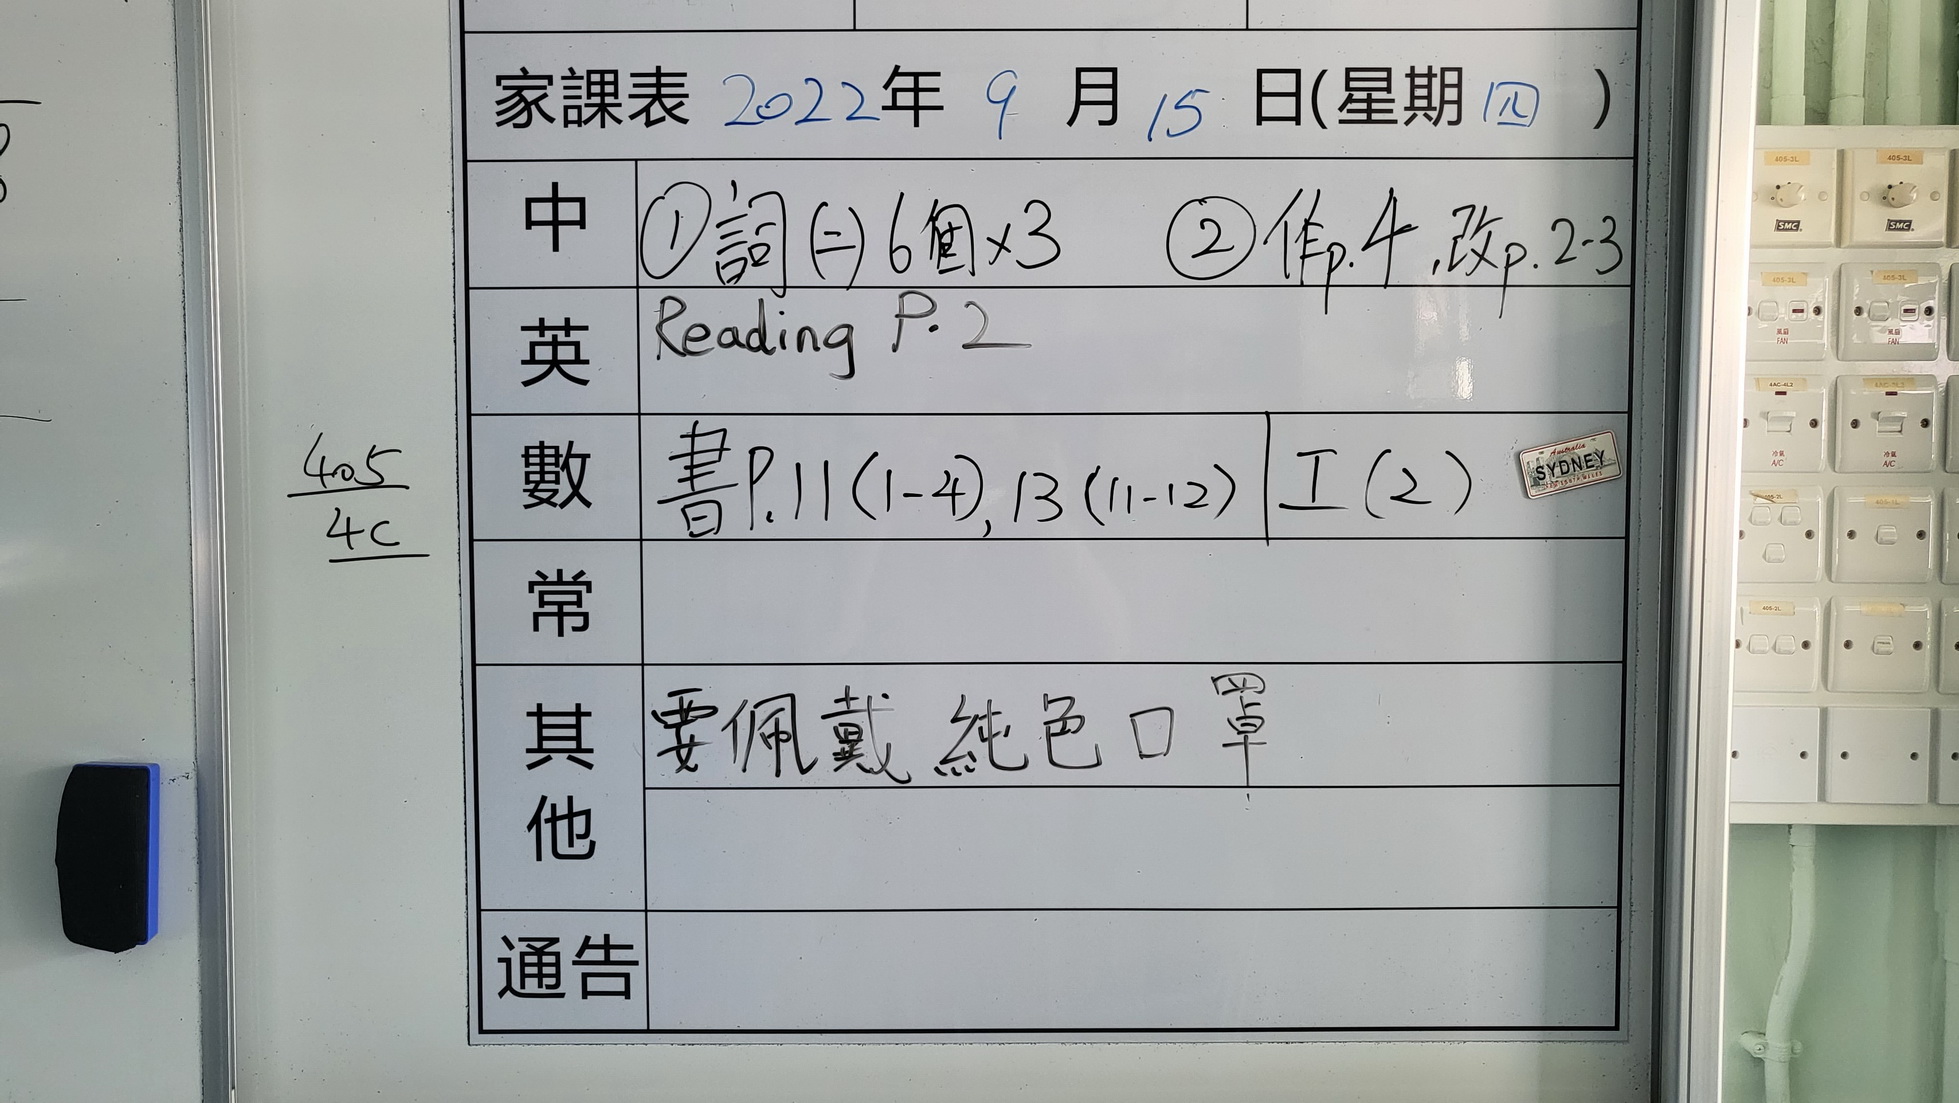 家課表 2022年 9 月 15 日(星期四 )
中 ①詞(二)6個x3 ②作p.4,改p.2-3
英 Reading P.2
數 書P.11(1-4),13(11-12) 工(2)
Australia
SYDNEY
405
4C
常
其他 要佩戴純色口罩
通告
405-3L 405-3L
SMC SMC
405-3L 405-3L
風扇 風扇
FAN FAN
4AC-4L2
冷氣 冷氣
A/C A/C
405-2L